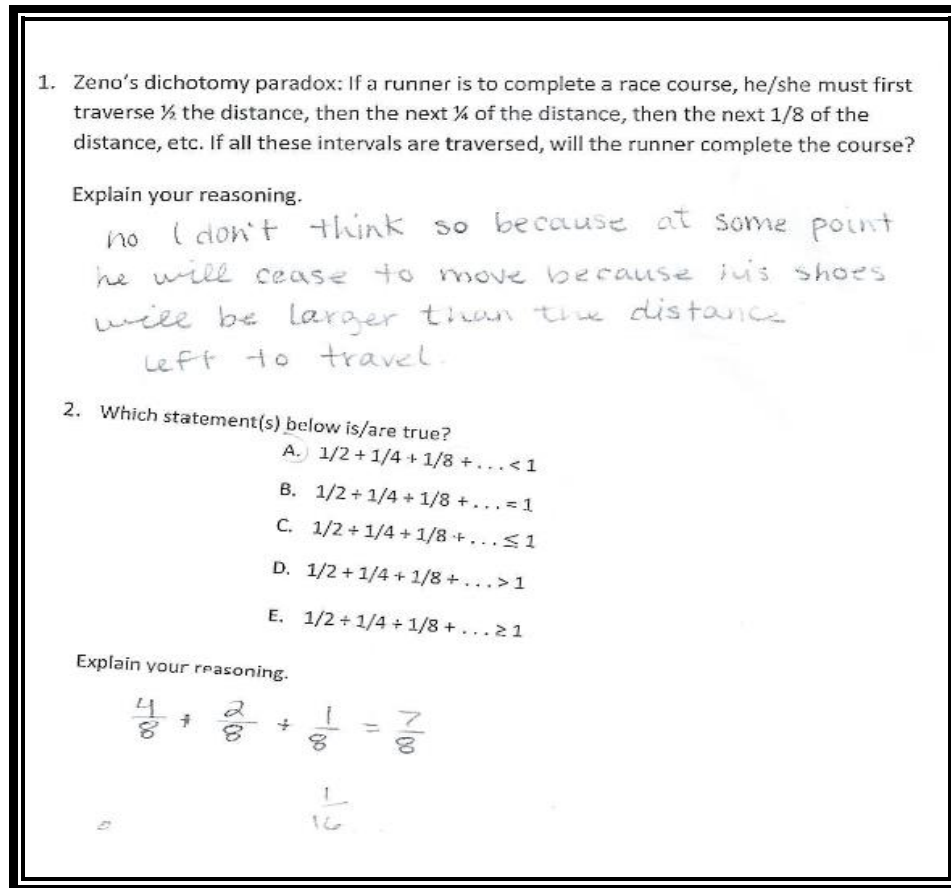 1. Zeno's dichotomy paradox: If a runner is to complete a race course, he/she must first
traverse ½ the distance, then the next ¼ of the distance, then the next 1/8 of the
distance, etc. If all these intervals are traversed, will the runner complete the course?
Explain your reasoning.
no I don't think so because at some point
he will cease to move because his shoes
will be larger than the distance
left to travel.
2. Which statement(s) below is/are true?
A. 1/2 + 1/4 + 1/8 + . . . < 1
B. 1/2 + 1/4 + 1/8 + . . . = 1
C. 1/2 + 1/4 + 1/8 + . . . ≤ 1
D. 1/2 + 1/4 + 1/8 + . . . > 1
E. 1/2 + 1/4 + 1/8 + . . . ≥ 1
Explain your reasoning.
4/8 + 2/8 + 1/8 = 7/8
1/16